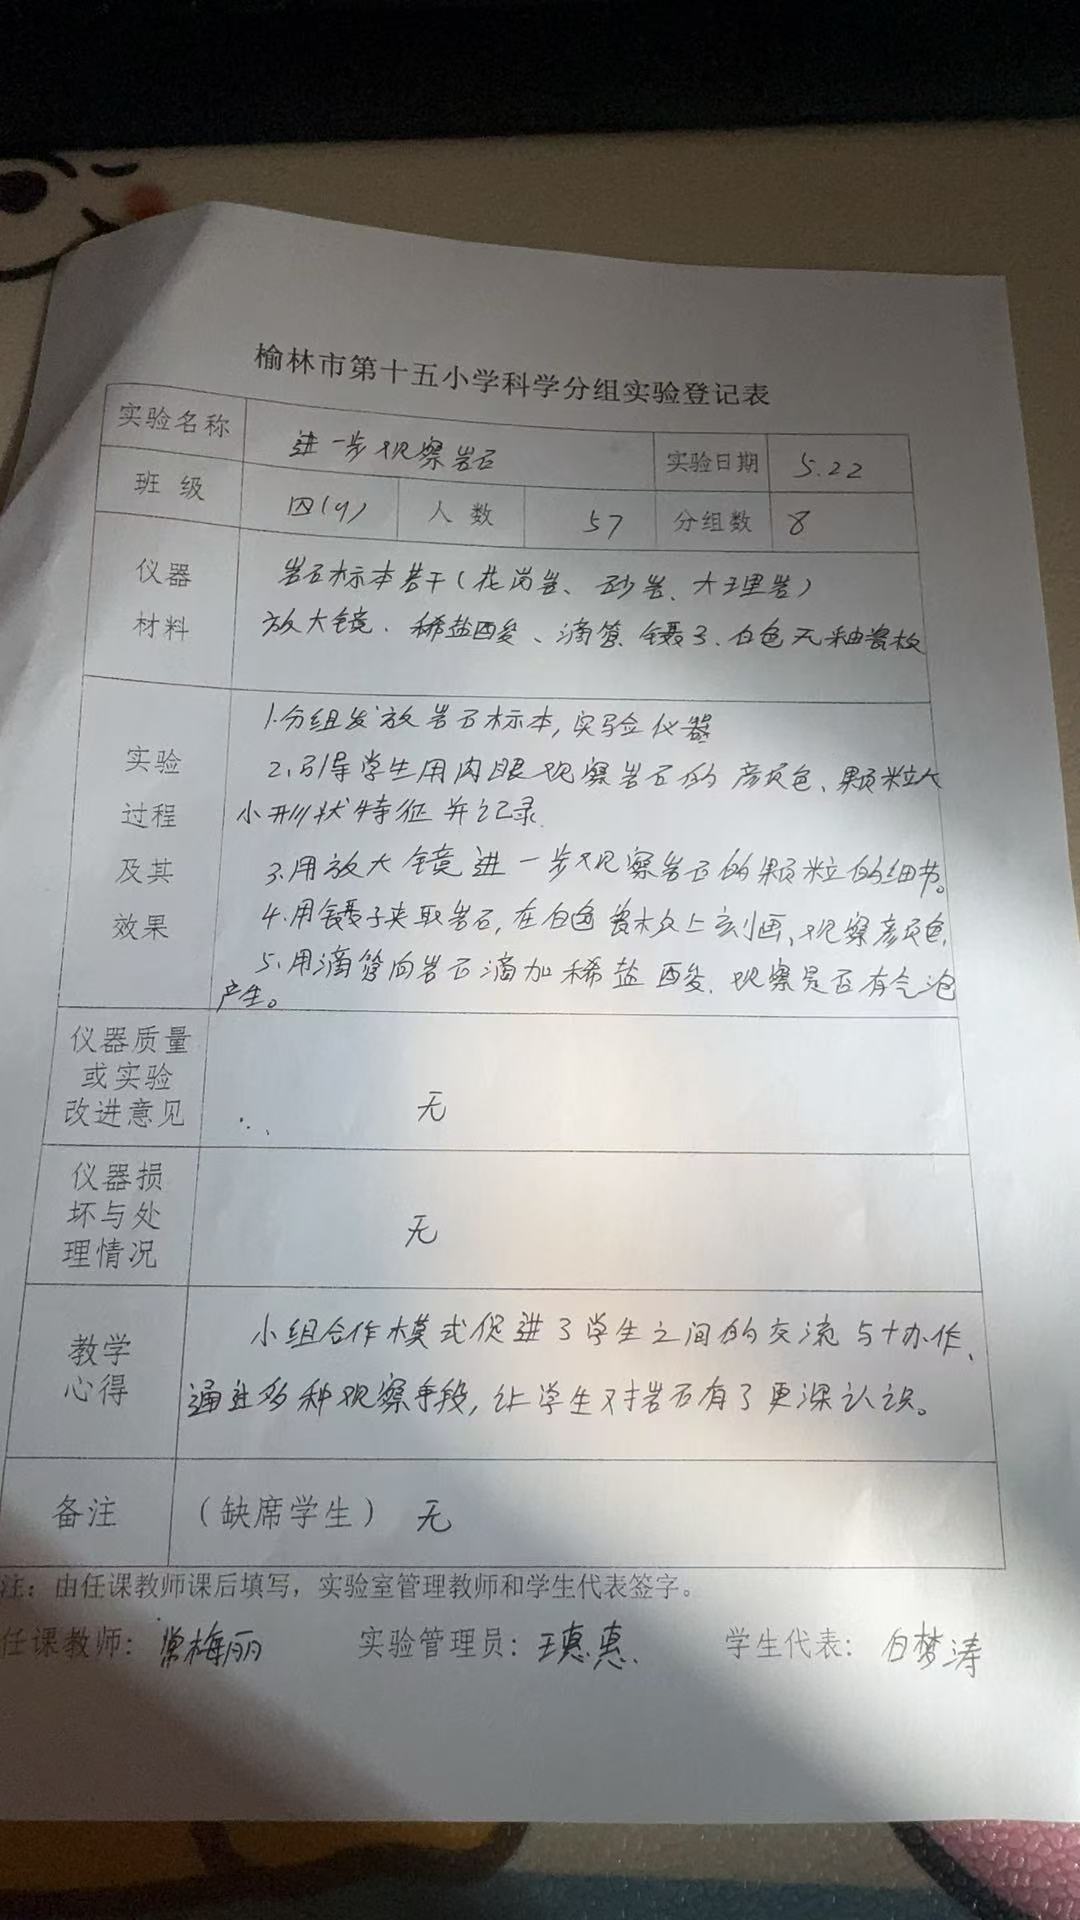 榆林市第十五小学科学分组实验登记表
实验名称 进一步观察岩石 实验日期 5.22
班级 四(4) 人数 57 分组数 8
仪器
材料
岩石标本若干(花岗岩、砂岩、大理岩)
放大镜、稀盐酸、滴管、镊子、白色无釉瓷板
实验
过程
及其
效果
1.分组发放岩石标本,实验仪器
2.引导学生用肉眼观察岩石的颜色、颗粒大
小形状特征并记录.
3.用放大镜进一步观察岩石的颗粒的细节。
4.用镊子夹取岩石,在白色瓷板上刻画、观察颜色.
5.用滴管向岩石滴加稀盐酸、观察是否有气泡
产生。
仪器质量
或实验
改进意见
无
仪器损
坏与处
理情况
无
教学
心得
小组合作模式促进了学生之间的交流与协作、
通过多种观察手段,让学生对岩石有了更深认识。
备注 (缺席学生) 无
注:由任课教师课后填写,实验室管理教师和学生代表签字。
任课教师: 常梅丽 实验管理员: 王惠惠. 学生代表: 白梦涛